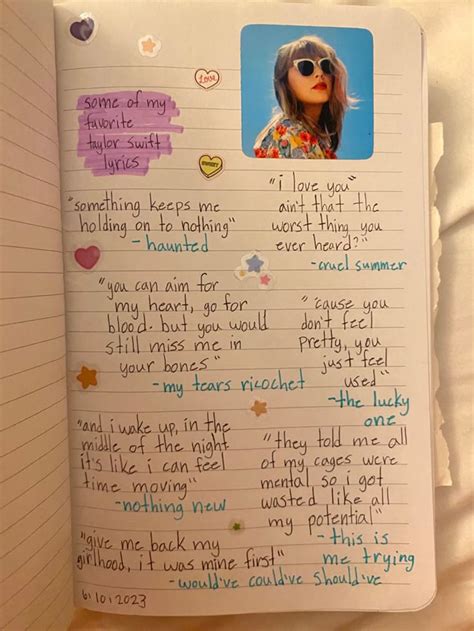 some of my
favorite
taylor swift
lyrics
Love
"something keeps me
holding on to nothing"
- haunted
"i love you"
ain't that the
worst thing you
ever heard?"
- cruel summer
"you can aim for
my heart, go for
blood. but you would
still miss me in
your bones"
- my tears ricochet
"'cause you
don't feel
pretty, you
just feel
used"
- the lucky
one
"and i wake up, in the
middle of the night
it's like i can feel
time moving"
- nothing new
"they told me all
of my cages were
mental, so i got
wasted like all
my potential"
- this is
me trying
"give me back my
girlhood, it was mine first"
- would've could've should've
6.10.2023